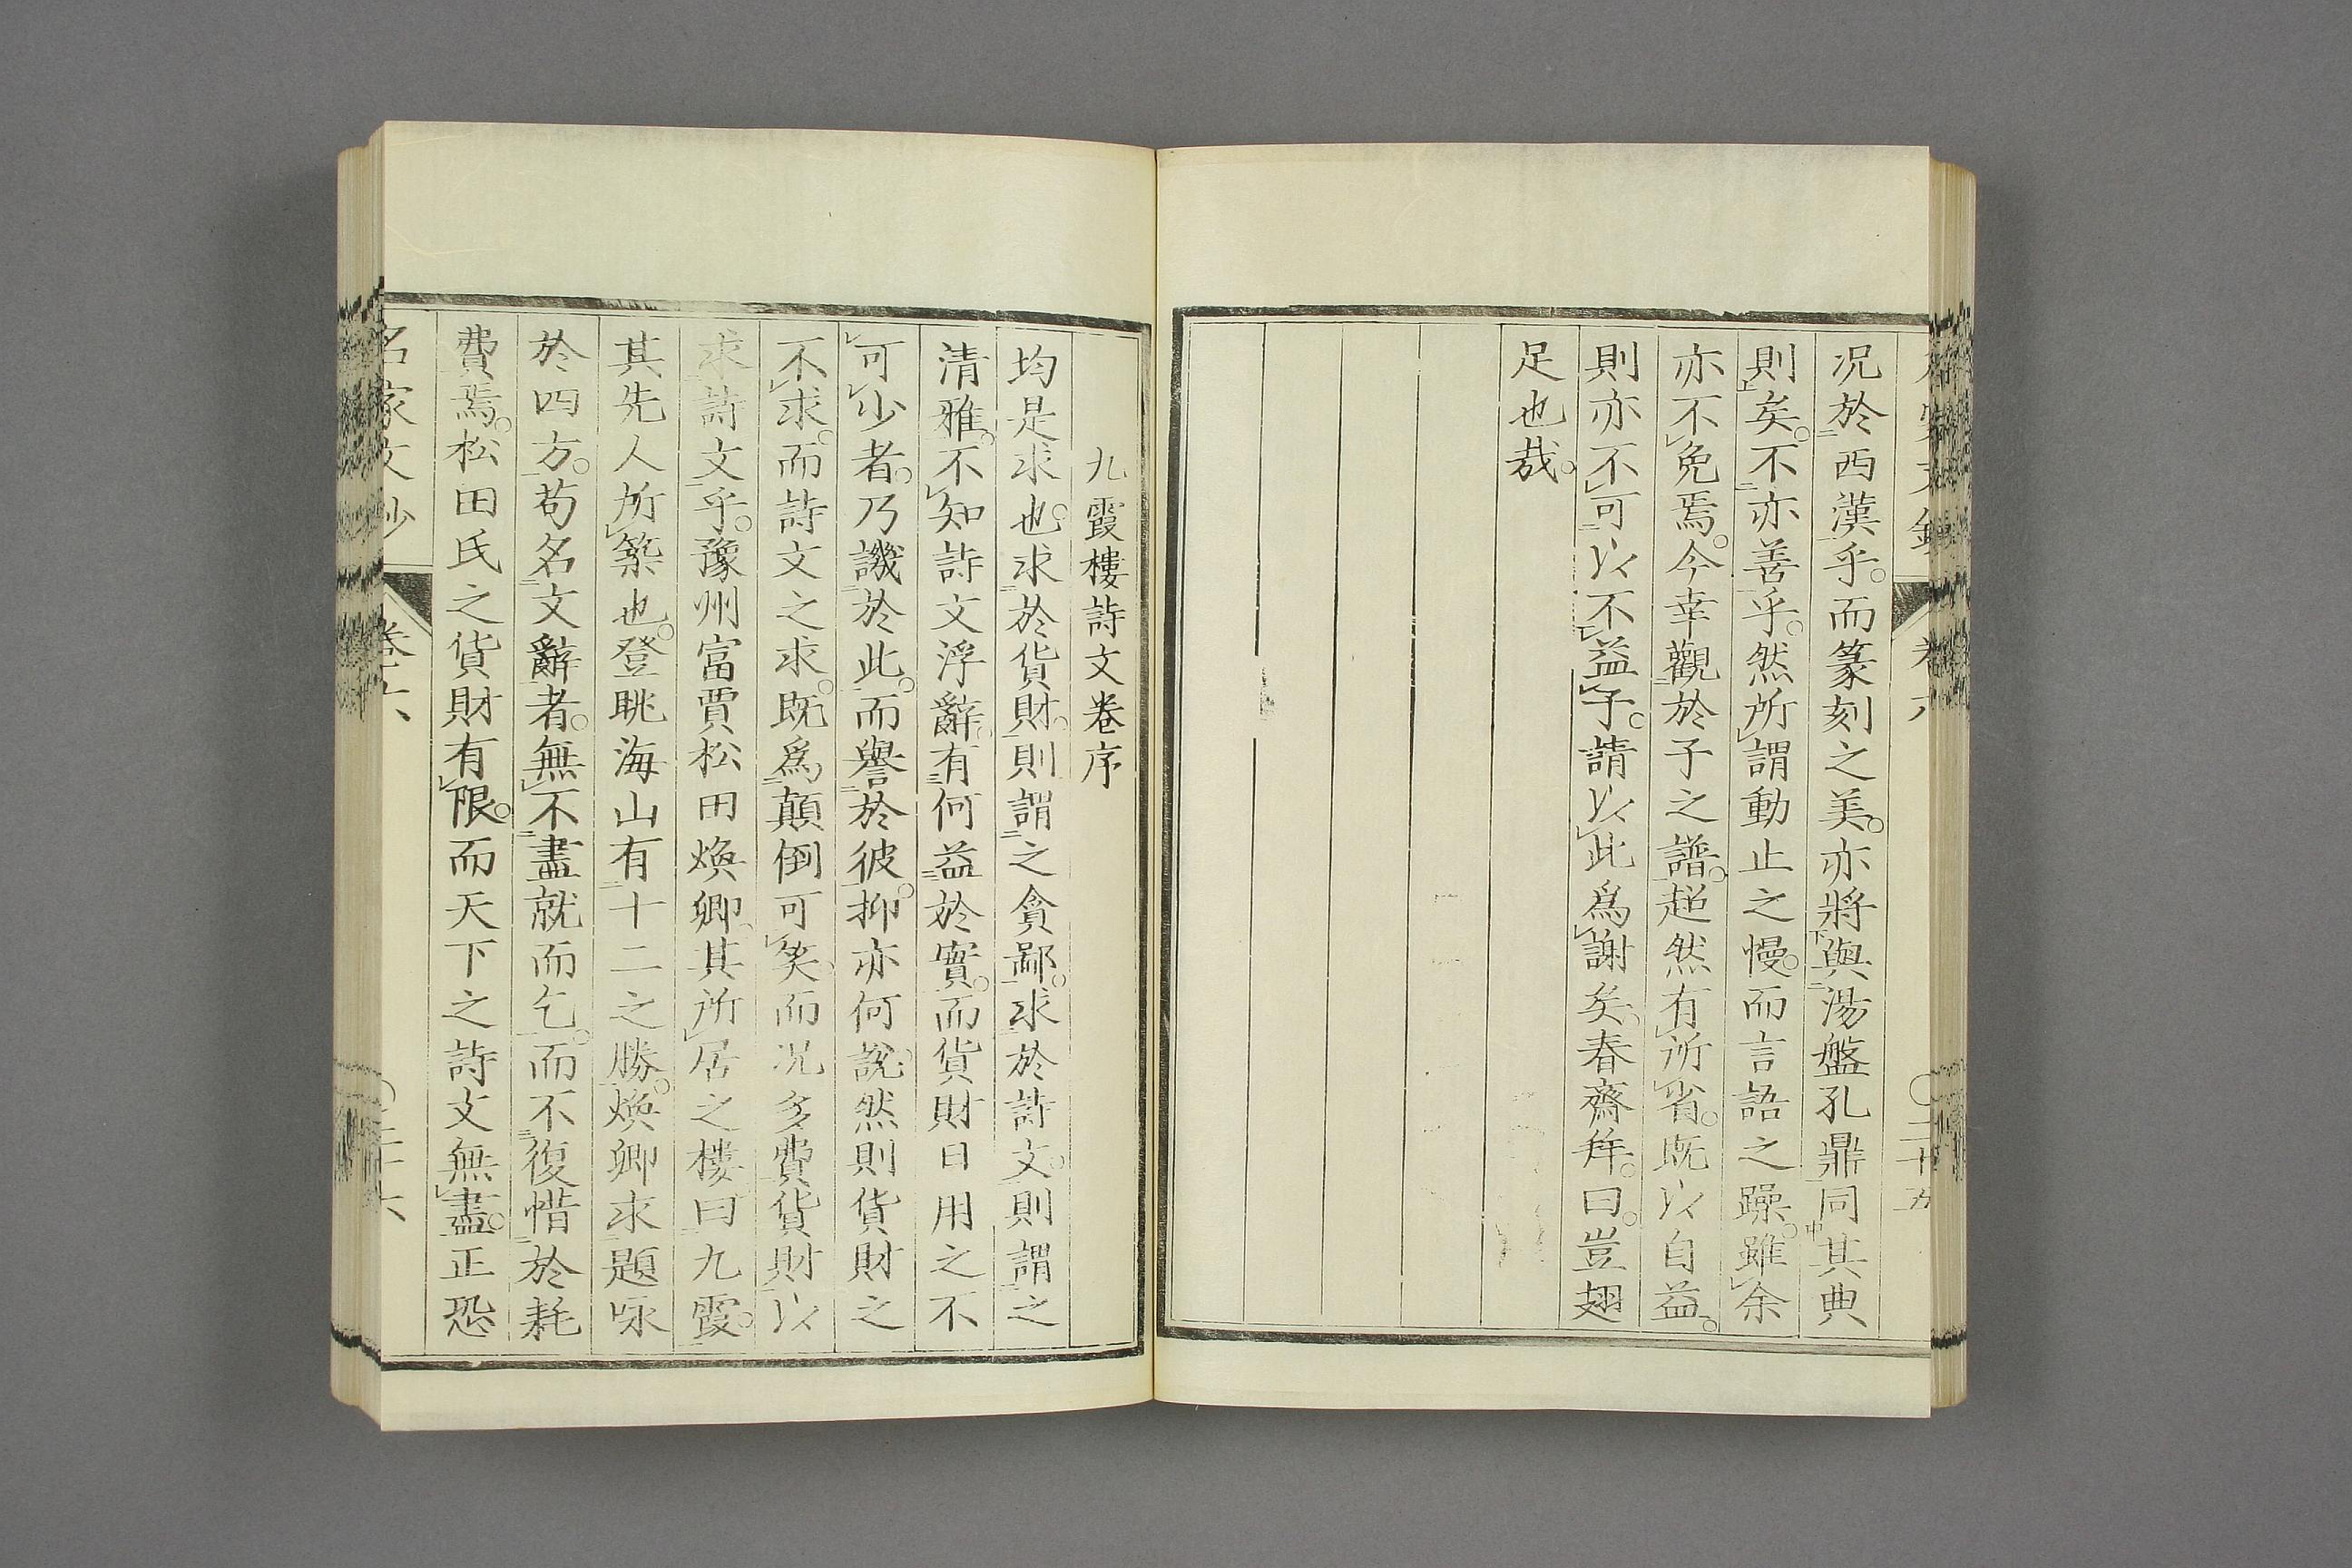 况於西漢乎。而篆刻之美。亦將與湯盤孔鼎同其典
則矣。不亦善乎。然所謂動止之慢。而言語之躁。雖余
亦不免焉。今幸觀於子之譜。超然有所省。既以自益。
則亦不可以不益子。請以此爲謝矣。春齋拜。曰。豈翅
足也哉。
九霞樓詩文卷序
均是求也。求於貨財。則謂之貪鄙。求於詩文。則謂之
清雅。不知詩文浮辭。有何益於實。而貨財日用之不
可少者。乃譏於此。而譽於彼。抑亦何説。然則貨財之
不求。而詩文之求。既爲顛倒可笑。而况多費貨財以
求詩文乎。豫州富賈松田煥卿。其所居之樓曰九霞。
其先人所築也。登眺海山有十二之勝。煥卿求題咏
於四方。苟名文辭者。無不盡就而乞。而不復惜於耗
費焉。松田氏之貨財有限。而天下之詩文無盡。正恐
名家文抄
卷六